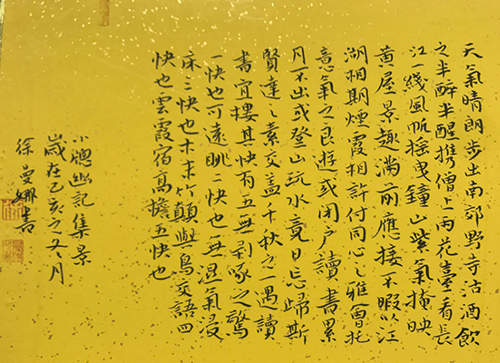 天氣晴朗步出南郊野寺沽酒飲
之半醉半醒攜僧上雨花臺看長
江一綫風帆搖曳鐘山紫氣掩映
黃屋景趣滿前應接不暇以江
湖相期煙霞相許付同心之雅會托
意氣之良遊或閉戶讀書累
月不出或登山玩水竟日忘歸斯
賢達之素交蓋千秋之一遇讀
書宜樓其快有五無剝啄之驚
一快也可遠眺二快也無濕氣浸
床三快也木末竹顛與鳥交語四
快也雲霞宿高檐五快也
小牕幽記集景
歲在己亥之冬月
徐曼娜書